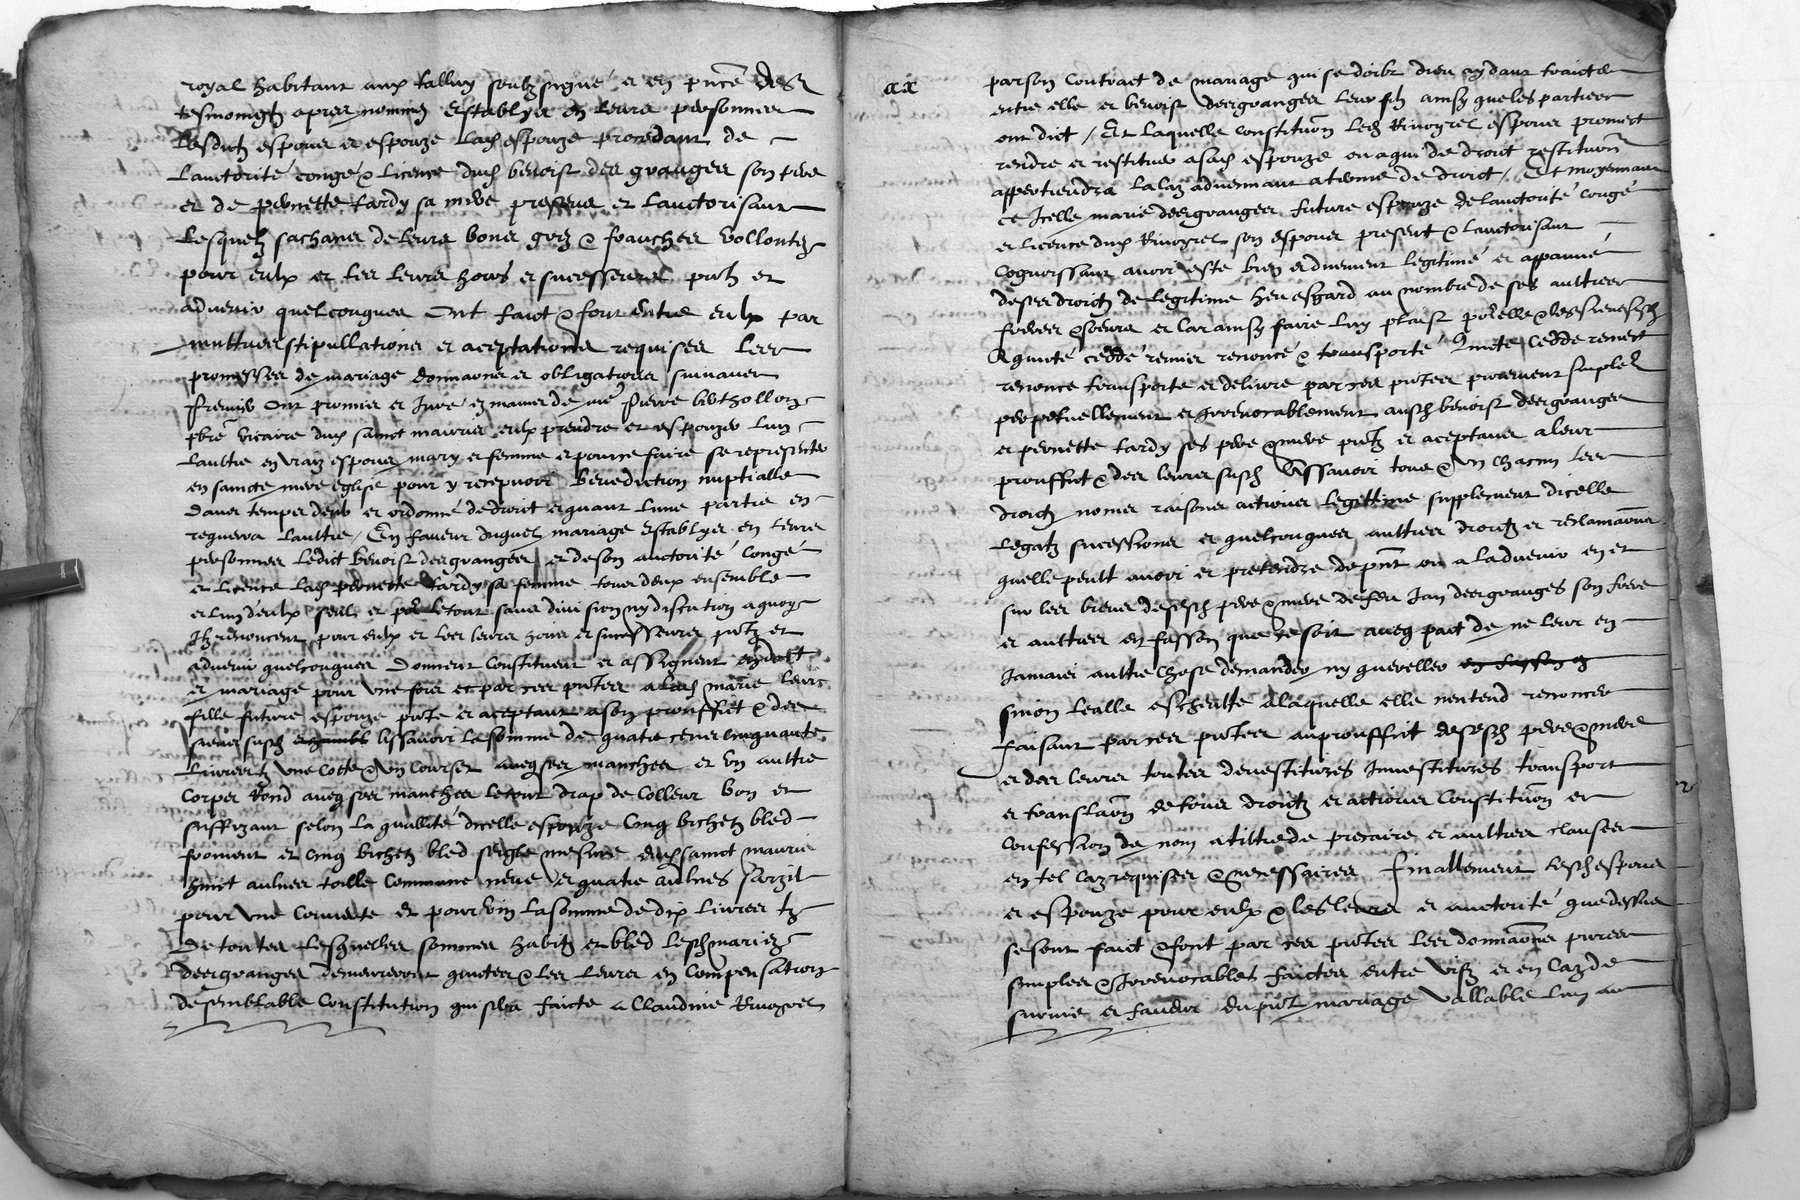 royal habitant aux tallury soubzsigné et en pnce des
tesmoingtz apres nommez Establys en leurs personnes
Lesdictz espoux et espouze Lad espouze procedant de
Lauctorité congé & Licence dud benoist des granges son pere
et de pernette tardy sa mere presens et Lauctorisant
Lesquelz sachans de leurs bons grez & franches vollontez
pour eulx et les leurs hoirs et successeurs pntz et
advenir quelconques Ont faict & font entre eulx par
muttues stipullations et aceptations requises Les
promesses de mariage donnaons et obligations suivans
Premier Ont promis et Juré en mains de mre Pierre berthollon
pbre vicaire dud sainct maurice eulx prendre et espouzer Lung
Laultre en vrays espoux mary et femme et pour ce faire se representer
en saincte mere eglise pour y recepvoir benediction nuptialle
dans temps deub et ordonné de droit et quant Lune partie en
requerra Laultre / En faveur duquel mariage Establys en leurs
personnes Ledict benoist desgranges et de son auctorité congé
et Licence Lad pernette tardy sa femme tous deux ensemble
et Lun deulx seul et por Letout sans division ny discution a quoy
Ilz renoncent pour eulx et Les leurs hoirs et successeurs pntz et
advenir quelconques donnent constituent et assignent en dott
et mariage pour une fois et par ces pntes a Lad marie leur
fille future espouze pnte et aceptant a son prouffit & des
siens susd assavoir La somme de quatre cens cinquante
Livres tz une cotte & un courset aveq ses manches et un aultre
corps rond aveq ses manches Le tout drap de colleur bon et
suffizant selon La quallité dicelle espouze cinq bichetz bled
froment et cinq bichetz bled seigle mesure dud sainct maurice
huict aulnes toille commune neuve et quatre aulnes sarzil
pour une couverte et pour vin La somme de dix Livres tz
De toutes Lesquelles sommes habitz et bled Lesd mariez
desgranges demeureront quictes & Les Leurs en compensation
de semblable constitution qui sera faicte a Claudine Rivoyrel
xx
par son contraict de mariage qui se doibt dieu aydant traicter
entre elle et benoist desgranges Leur filz ainsy que les parties
ont dict / Et Laquelle constitution Led Rivoyrel espoux promect
rendre et restituer a sad espouze ou a qui de droit restitution
appertiendra Le cas advennant a terme de droict / Et moyennant
ce Icelle marie desgranges future espouze de Lauctorité congé
et Licence dud Rivoyrel son espoux present & Lauctorisant
Cognoissant avoir esté bien et duement legitimé et appanné
de ses droitz de Legitime heu esgard au nombre de ses aultres
freres & soeurs et Car ainsy faire Luy plaist por elle & les siens susd
A quicté ceddé remis renoncé & transporté Quicte cedde remect
renonce transporte et delivre par ces pntes purement simplet
perpetuellement et Irrevocablement ausd benoist desgranges
et pernette tardy ses pere & mere pntz et aceptans a leur
prouffict & des leurs susd Assavoir tous & un chacun Les
droitz noms raisons actions Legittime supplement dicelle
Legatz sucessions et quelconques aultres droictz et reclamaons
quelle peult avoir et pretendre de pnt ou a Ladvenir en et
sur les biens de sesd pere & mere de feu Jan desgranges son frere
et aultres en fasson que ce soit aveq pact de ne leur en
Jamais aultre chose demander ny quereller
sinon Lealle escheutte a Laquelle elle nentend renoncer
faisant par ces pntes au prouffict de sesd pere & mere
et des leurs toutes devestitures Investitures transport
et translaon de tous droictz et actions constitution et
confession de nom a tiltre de precaire et aultres clauses
en tel cas requises & necessaires Finallement Lesd espoux
et espouze pour eulx & les leurs et auctorité que dessus
se sont faict & font par ces pntes Les donnaons pures
simples & Irrevocables faictes entre vifz et en cas de
survie et faveur du pnt mariage vallable Lun au